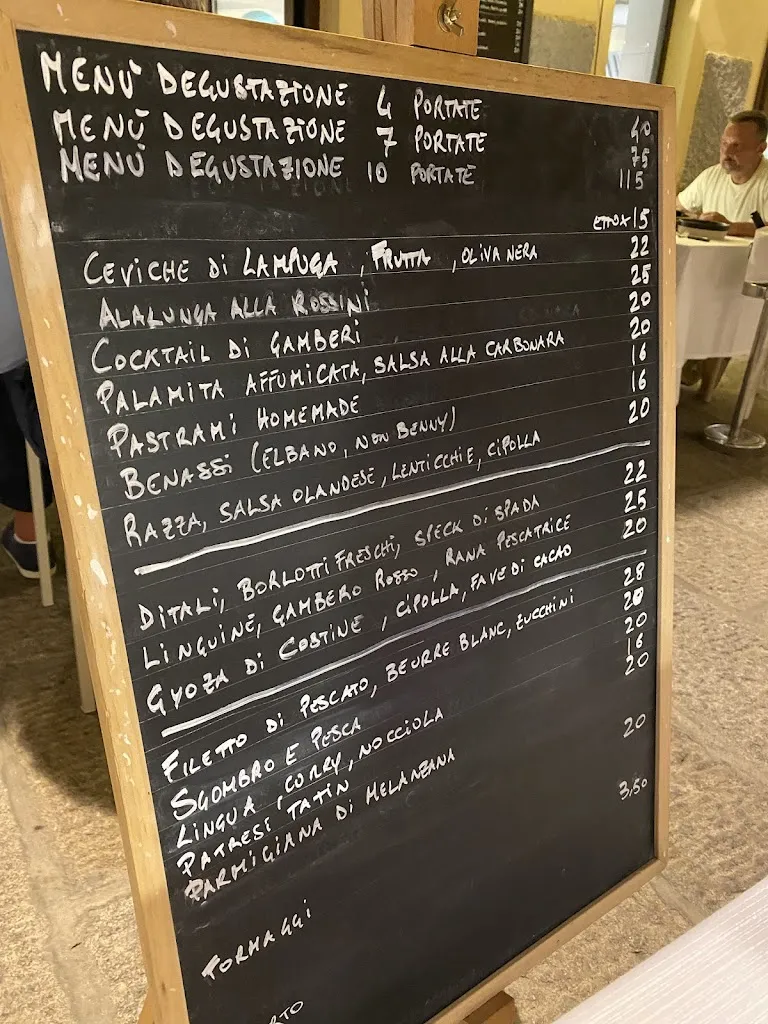 MENÙ DEGUSTAZIONE 4 PORTATE 40
MENÙ DEGUSTAZIONE 7 PORTATE 75
MENÙ DEGUSTAZIONE 10 PORTATE 115
15
CEVICHE DI LAMPUGA, FRUTTA, OLIVA NERA 22
ALALUNGA ALLA ROSSINI 25
COCKTAIL DI GAMBERI 20
PALAMITA AFFUMICATA, SALSA ALLA CARBONARA 20
PASTRAMI HOMEMADE 16
BENASSI (ELBANO, NON BENNY) 16
RAZZA, SALSA OLANDESE, LENTICCHIE, CIPOLLA 20
DITALI, BORLOTTI FRESCHI, SPECK DI SPADA 22
LINGUINE, GAMBERO ROSSO, RANA PESCATRICE 25
GYOZA DI COSTINE, CIPOLLA, FAVE DI CACAO 20
FILETTO DI PESCATO, BEURRE BLANC, ZUCCHINI 28
SGOMBRO E PESCA 20
LINGUA, CURRY, NOCCIOLA 20
PATRESI TATIN 16
PARMIGIANA DI MELANZANA 20
FORMAGGI 20
3,50